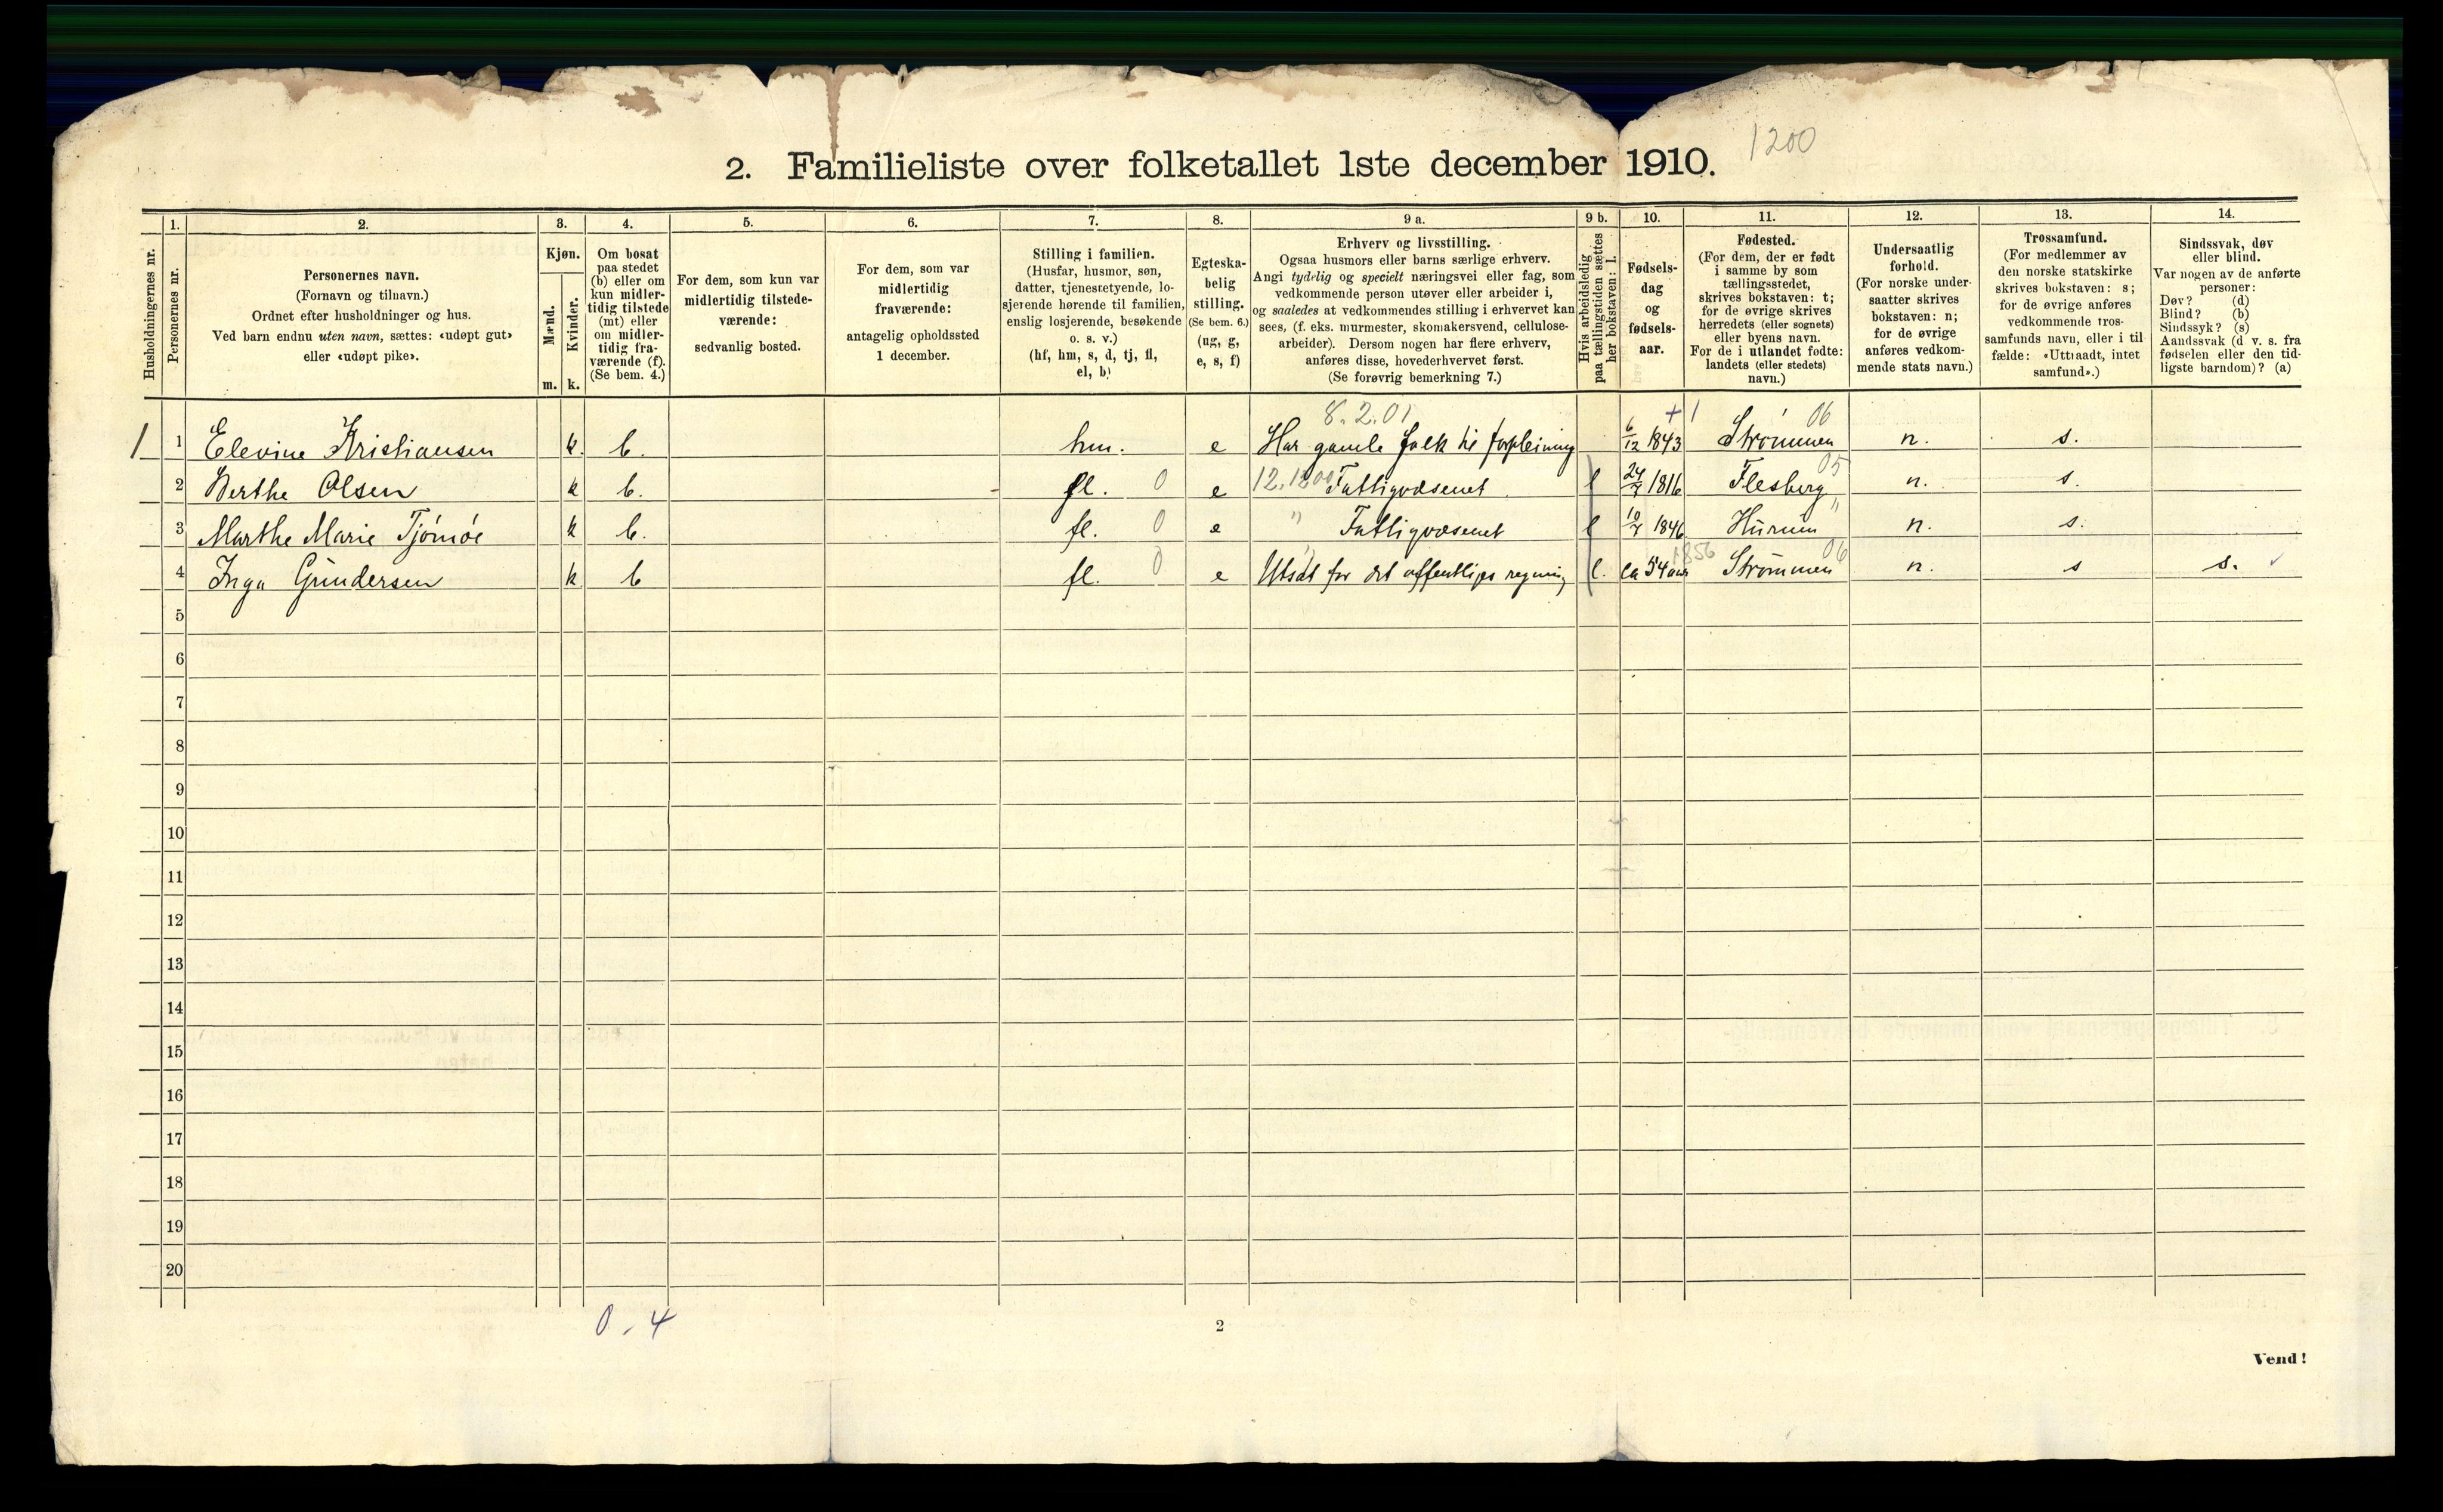 1200
2. Familieliste over folketallet 1ste december 1910.
1. 2. 3. 4. 5. 6. 7. 8. 9 a. 9 b. 10. 11. 12. 13. 14.
Husholdningernes nr.
Personernes nr.
Personernes navn.
(Fornavn og tilnavn.)
Ordnet efter husholdninger og hus.
Ved barn endnu uten navn, sættes: «udøpt gut»
eller «udøpt pike».
Kjøn.
Mænd.
Kvinder.
m. k.
Om bosat
paa stedet
(b) eller om
kun midler-
tidig tilstede
(mt) eller
om midler-
tidig fra-
værende (f).
(Se bem. 4.)
For dem, som kun var
midlertidig tilstede-
værende:
sedvanlig bosted.
For dem, som var
midlertidig
fraværende:
antagelig opholdssted
1 december.
Stilling i familien.
(Husfar, husmor, søn,
datter, tjenestetyende, lo-
sjerende hørende til familien,
enslig losjerende, besøkende
o. s. v.)
(hf, hm, s, d, tj, fl,
el, b)
Egteska-
belig
stilling.
(Se bem. 6.)
(ug, g,
e, s, f)
Erhverv og livsstilling.
Ogsaa husmors eller barns særlige erhverv.
Angi tydelig og specielt næringsvei eller fag, som
vedkommende person utøver eller arbeider i,
og saaledes at vedkommendes stilling i erhvervet kan
sees, (f. eks. murmester, skomakersvend, cellulose-
arbeider). Dersom nogen har flere erhverv,
anføres disse, hovederhvervet først.
(Se forøvrig bemerkning 7.)
Hvis arbeidsledig
paa tællingstiden sættes
her bokstaven: l.
Fødsels-
dag
og
fødsels-
aar.
Fødested.
(For dem, der er født
i samme by som
tællingsstedet,
skrives bokstaven: t;
for de øvrige skrives
herredets (eller sognets)
eller byens navn.
For de i utlandet fødte:
landets (eller stedets)
navn.)
Undersaatlig
forhold.
(For norske under-
saatter skrives
bokstaven: n;
for de øvrige
anføres vedkom-
mende stats navn.)
Trossamfund.
(For medlemmer av
den norske statskirke
skrives bokstaven: s;
for de øvrige anføres
vedkommende tros-
samfunds navn, eller i til
fælde: «Uttraadt, intet
samfund».)
Sindssvak, døv
eller blind.
Var nogen av de anførte
personer:
Døv? (d)
Blind? (b)
Sindssyk? (s)
Aandssvak (d v. s. fra
fødselen eller den tid-
ligste barndom)? (a)
8.2.01 + 1 06
1 1 Elevine Kristiansen k. b. hm. e Har gamle folk til forpleining 6/12 1843 Strømmen n. s.
2 Berthe Olsen k b. fl. 0 e 12.1200 Fattigvæsenet l 24/7 1816 Flesberg 05 n. s.
3 Marthe Marie Tjømøe k b. fl. 0 e " Fattigvæsenet l 10/7 1846 Hurum " n. s.
4 Inga Gundersen k b fl. 0 e Utsat for det offentliges regning l. ca 54 aar 1856 Strømmen 06 n. s s. ✓
5
6
7
8
9
10
11
12
13
14
15
16
17
18
19
20
0 - 4
2
Vend!